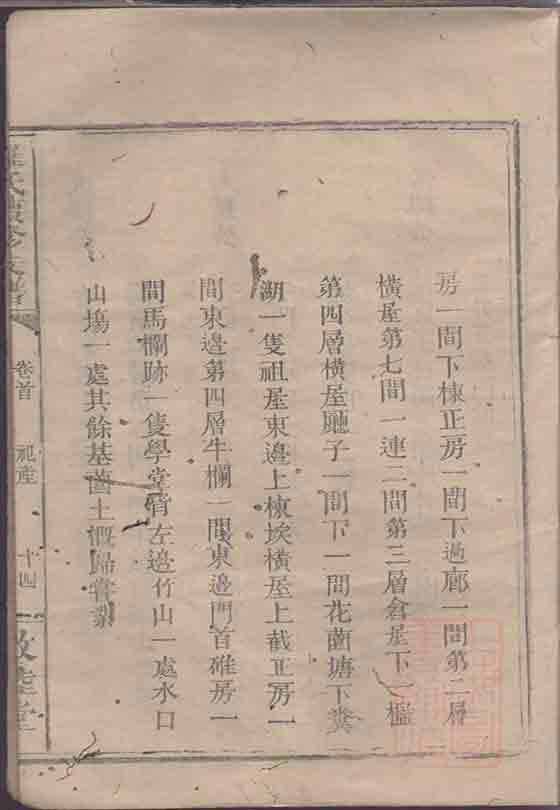 房一間下棟正房一間下過廊一間第二層
橫屋第七間一連二間第三層倉屋下一櫳
第四層橫屋廳子一間下一間花薗塘下糞
湖一隻祖屋東邊上棟挨橫屋上截正房一
間東邊第四層牛欄一間東邊門首碓房一
間馬欄跡一隻學堂背左邊竹山一處水口
山塲一處其餘基薗土概歸嘗業
氏重修支譜
卷首
祀產
十四
敦堂